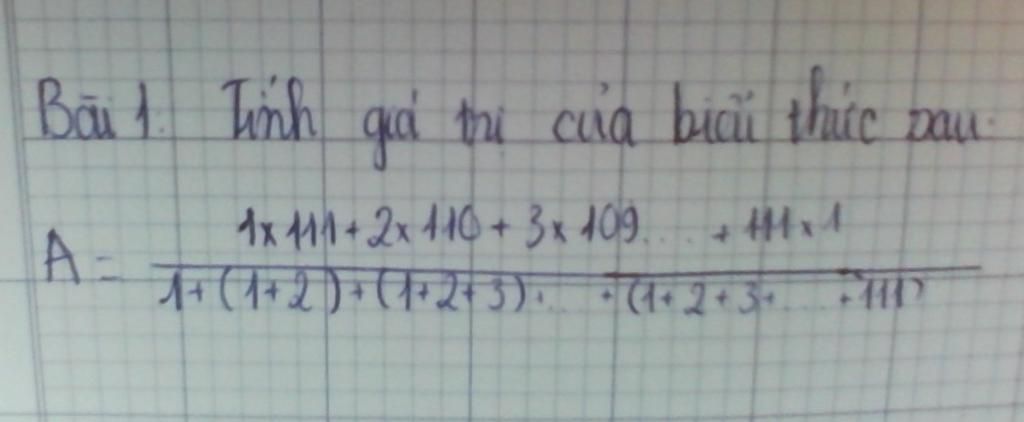 Bài 1. Tính giá trị của biểu thức sau.
1 x 111 + 2 x 110 + 3 x 109 .... + 111 x 1
A =
1 + (1 + 2) + (1 + 2 + 3) + .... + (1 + 2 + 3 + .... + 111)